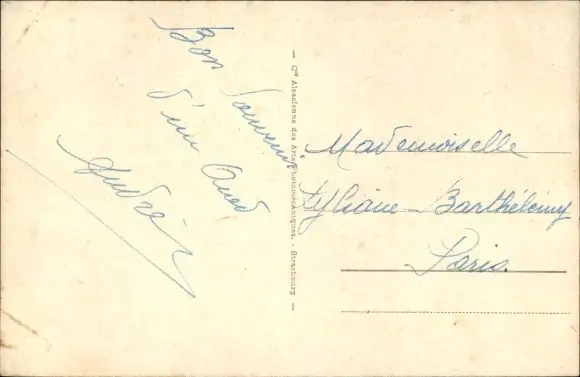 Bon Souvenir
d'un Oued
André
— Cie Alsacienne des Arts Photomécaniques, - Strasbourg —
Mademoiselle
Lyliane Barthélémy
Paris